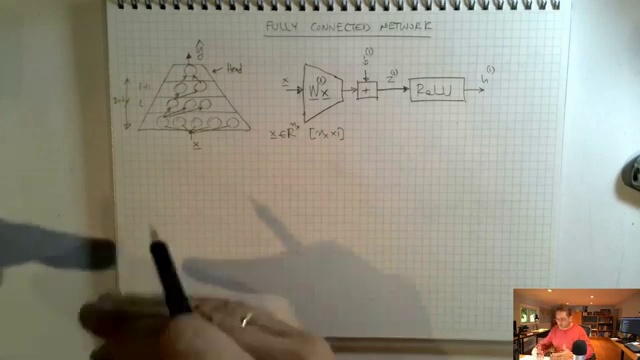 FULLY CONNECTED NETWORK
ŷ
Head
l+1
l
x
x
W⁽¹⁾x
b⁽¹⁾
+
z⁽¹⁾
ReLU
h⁽¹⁾
x ∈ R^{n_x} [n_x × 1]